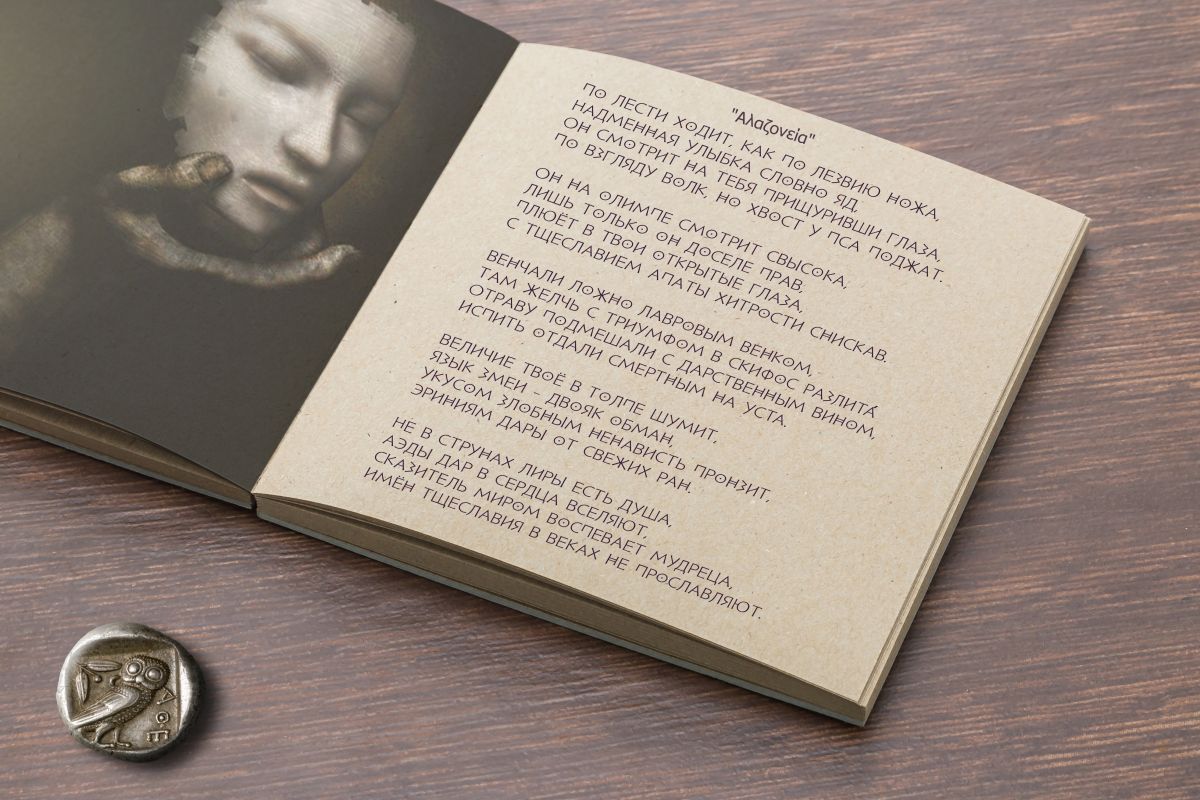 "Αλαζονεία"
ПО ЛЕСТИ ХОДИТ, КАК ПО ЛЕЗВИЮ НОЖА,
НАДМЕННАЯ УЛЫБКА СЛОВНО ЯД,
ОН СМОТРИТ НА ТЕБЯ ПРИЩУРИВШИ ГЛАЗА,
ПО ВЗГЛЯДУ ВОЛК, НО ХВОСТ У ПСА ПОДЖАТ.
ОН НА ОЛИМПЕ СМОТРИТ СВЫСОКА.
ЛИШЬ ТОЛЬКО ОН ДОСЕЛЕ ПРАВ,
ПЛЮЁТ В ТВОИ ОТКРЫТЫЕ ГЛАЗА,
С ТЩЕСЛАВИЕМ АПАТЫ ХИТРОСТИ СНИСКАВ.
ВЕНЧАЛИ ЛОЖНО ЛАВРОВЫМ ВЕНКОМ,
ТАМ ЖЕЛЧЬ С ТРИУМФОМ В СКИФОС РАЗЛИТА́
ОТРАВУ ПОДМЕШАЛИ С ДАРСТВЕННЫМ ВИНОМ,
ИСПИТЬ ОТДАЛИ СМЕРТНЫМ НА УСТА.
ВЕЛИЧИЕ ТВОЁ В ТОЛПЕ ШУМИТ,
ЯЗЫК ЗМЕИ - ДВОЯК ОБМАН,
УКУСОМ ЗЛОБНЫМ НЕНАВИСТЬ ПРОНЗИТ,
ЭРИНИЯМ ДАРЫ ОТ СВЕЖИХ РАН.
НЕ В СТРУНАХ ЛИРЫ ЕСТЬ ДУША,
АЭДЫ ДАР В СЕРДЦА ВСЕЛЯЮТ,
СКАЗИТЕЛЬ МИРОМ ВОСПЕВАЕТ МУДРЕЦА,
ИМЁН ТЩЕСЛАВИЯ В ВЕКАХ НЕ ПРОСЛАВЛЯЮТ.
ΑΘΕ